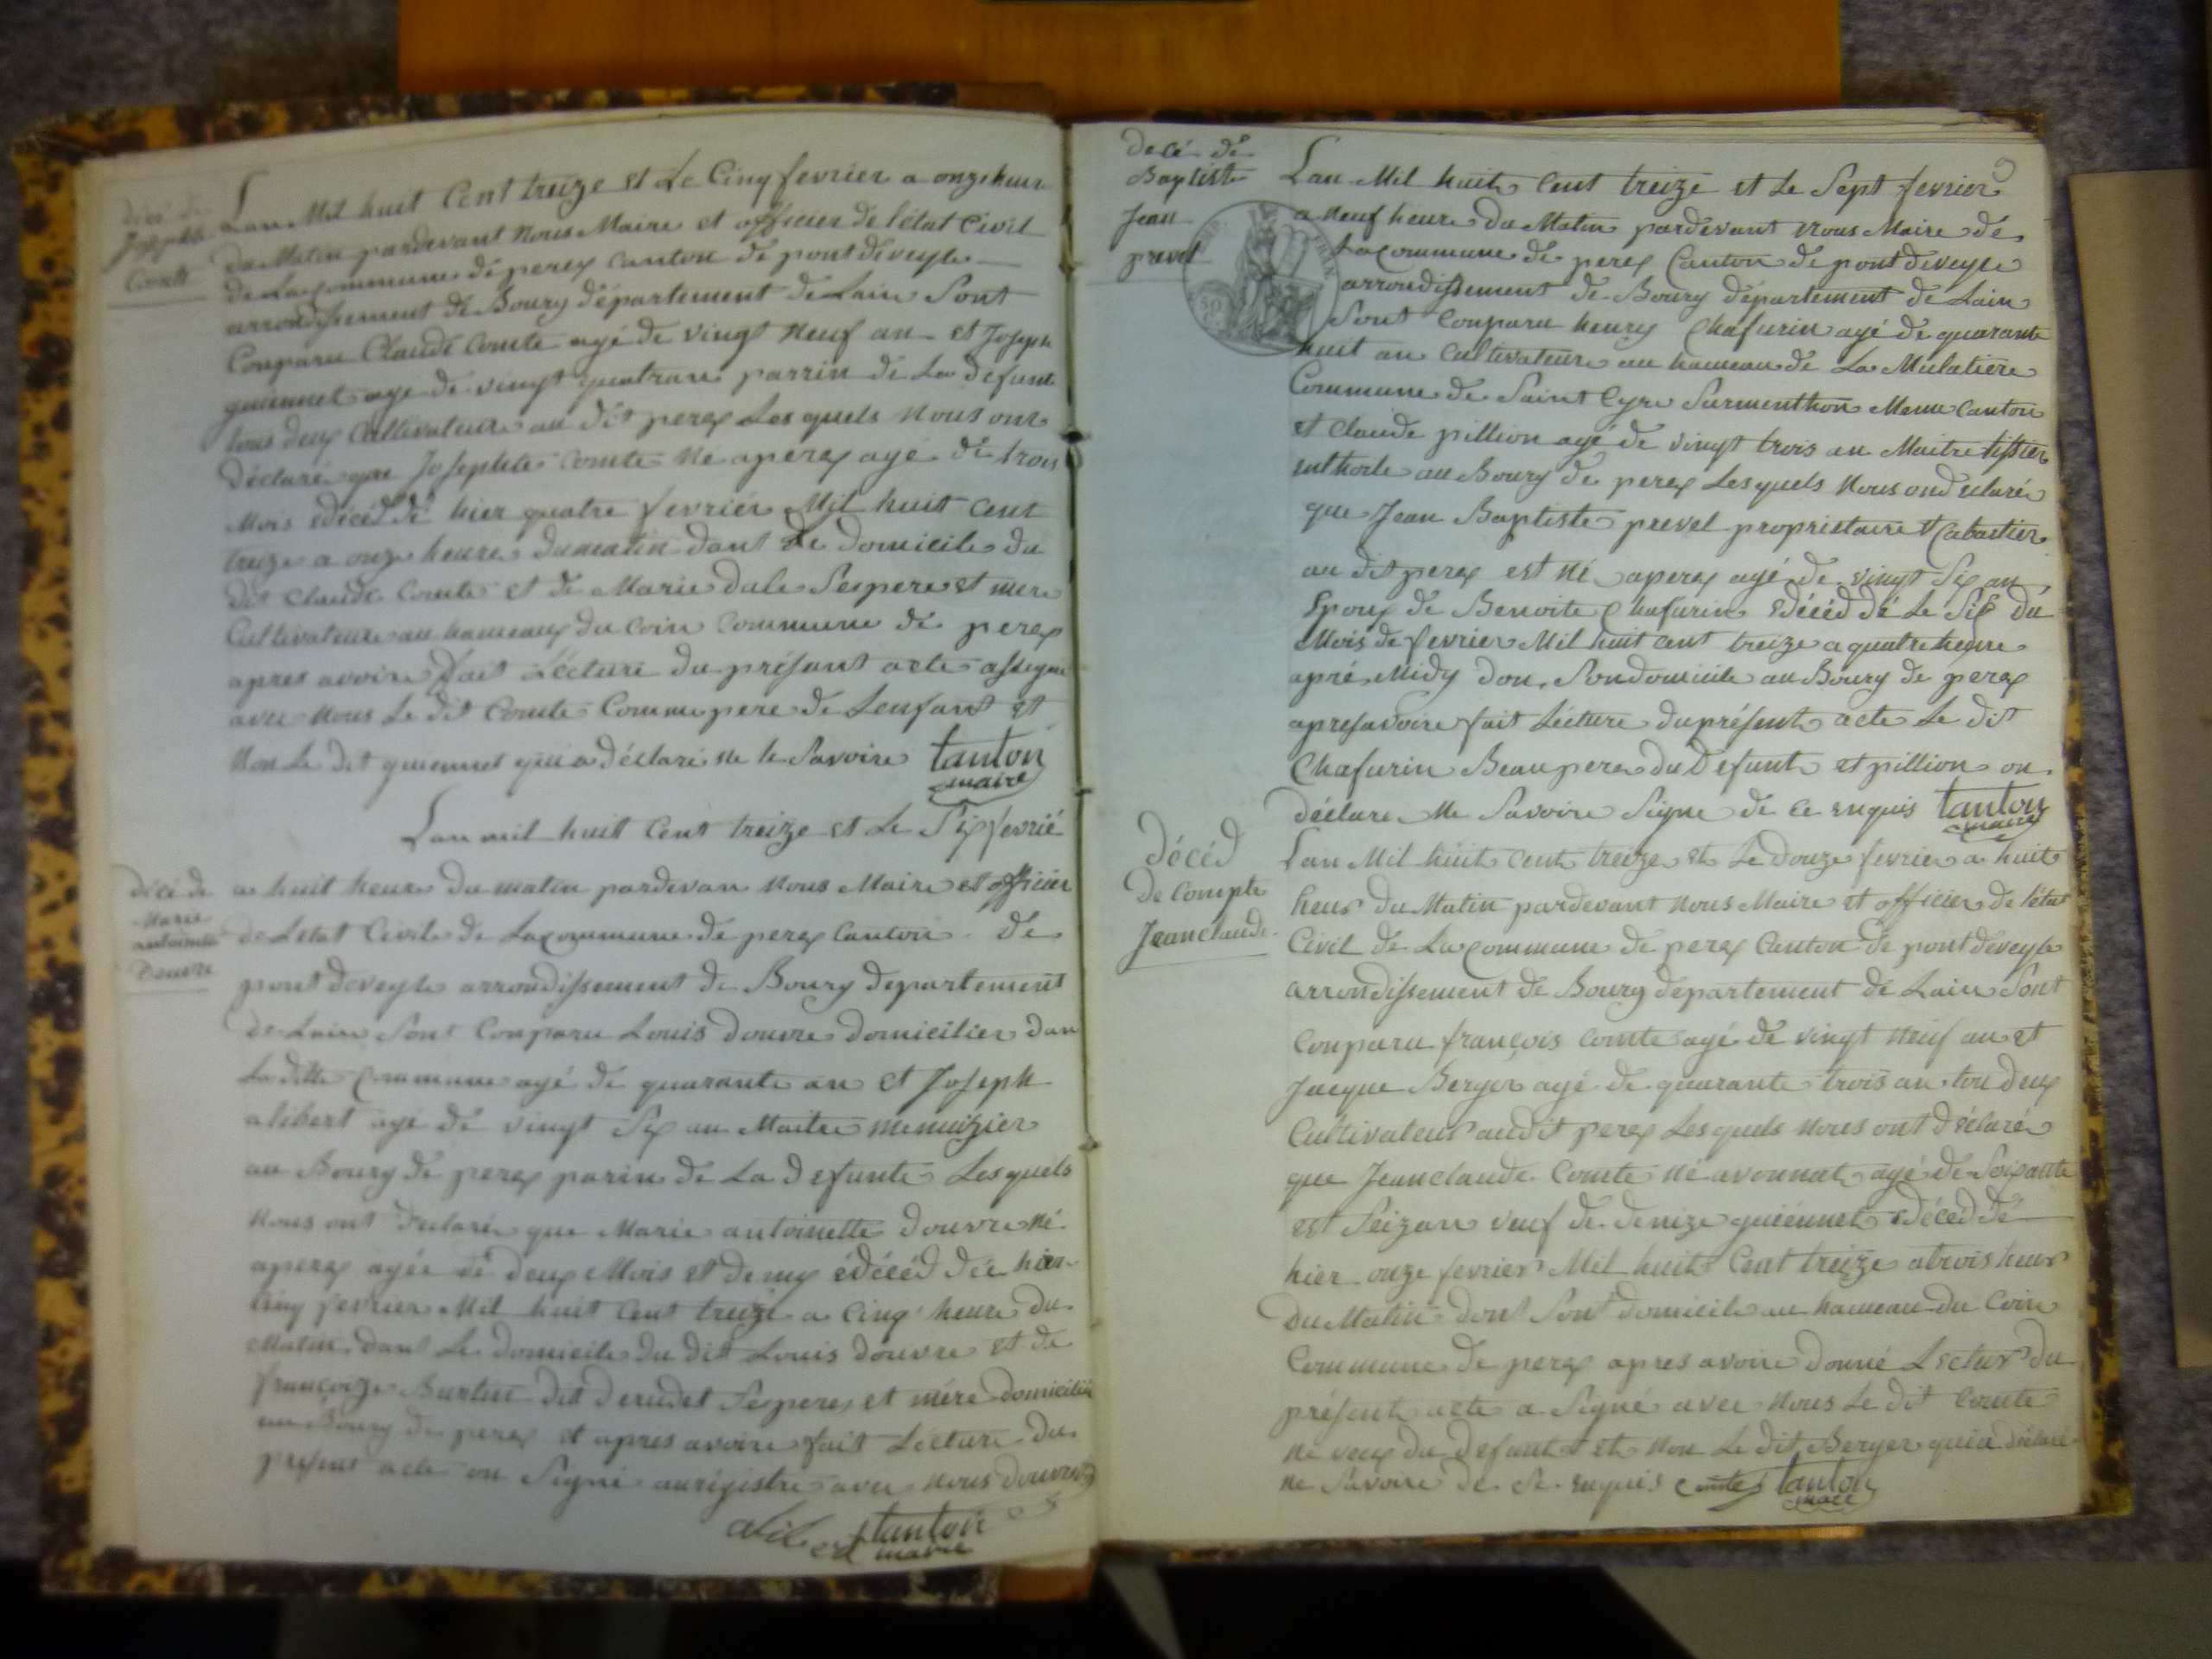 décé de
Josephte
Comte
Lan Mil huit Cent treize et Le Cinq fevrier a onze heure
du Matin pardevant nous Maire et officier de l'état Civil
de La Commune de perex Canton de pontdeveyle
arrondissement de Bourg département de Lain Sont
Conparu Claude Comte agé de vingt neuf an et Joseph
guiennet age de vingt quatran parrin de La defunte
tous deux Cultivateur au dit perex Les quels nous ont
déclaré que Josephte Comte né aperex agé de trois
Mois edécéd dé hier quatre fevrier Mil huit Cent
treize a onze heure du matin dant Le Domicile du
dit Claude Comte et de Marie dale Ses pere et mere
Cultivateur au hameaux du Coin Commune de perex
apres avoire fait Lécture du présant acte assigne
avec nous Le dit Comte Comme pere de Lenfant et
Non Le dit guiennet qui a déclaré ne le Savoire tanton
maire
Lan mil huit Cent treize et Le Six fevrié
décé de
Marie
antoinette
Douvre
a huit heure du matin pardevan nous Maire et officier
de Letat Civile de La Commune de perex Canton de
pont deveyle arrondissement de Bourg departement
de Lain Sont Conparu Louis douvre domicilier dan
La ditte Commune agé de quarante an et Joseph
alibert agé de vingt Six an Maitre menuizier
au Bourg de perex parin de La defunte Les quels
Nous ont declaré que Marie antoinette douvre né
aperex agée de deux Mois et demy edécéd dée hier
Cinq fevrier Mil huit Cent treize a Cinq heure du
Matin dant Le domicile du dit Louis douvre et de
françoize Burtin dit derudet Ses pere et mére domicilié
au Bourg de perex et apres avoire fait Lécture du
présent acte on Signé au régistre avec nous douvre
alibert tanton
maire
decé dé
Baptiste
Jean
prevel
Lan Mil huit Cent treize et Le Sept fevrier
a neuf heure du Matin pardevant nous Maire de
La Commune de perex Canton de pont deveyle
arrondissement de Bourg département de Lain
Sont Conparu henry Chafurin agé de quarante
huit an Cultivateur au hameau de La Mulatiere
Commune de Saint Cyre Surmenthon Meme Canton
et Claude pillion agé de vingt trois an Maitre tissier
enthoile au Bourg de perex Lesquels Nous ond eclaré
que Jean Baptiste prevel proprietaire et Cabartier
au dit perex est né aperex agé de vingt Six an
Epoux de Benoite Chafurin edécéd dé Le Six du
Mois de fevrier Mil huit cent treize a quatre heure
apré Midy don Son domicile au Bourg de perex
apres avoire fait Lécture du présent acte Le dit
Chafurin Beaupere du Defunt et pillion on
déclare Ne Savoire Signe de ce enquis tanton
maire
décéd
de Compte
Jean claude
Lan Mil huit Cent treize et Le Douze fevrier a huit
heur du Matin pardevant nous Maire et officier de l'état
Civil de La Commune de perex Canton de pont deveyle
arrondissement de Bourg departement de Lain Sont
Conparu françois Comte agé de vingt neuf an et
Jacque Berger agé de quarante trois an tou deux
Cultivateur audit perex Les quels Nous ont déclaré
que Jean claude Comte né avonnat agé de Soixante
est Seizan veuf de denize guiennet edéced dé
hier onze fevrier Mil huit Cent treize a trois heur
Du Matin dont Sont domicile au hameau du Coin
Commune de perex apres avoire donné Lectur du
présent acte a Signé avec Nous Le dit Comte
ne veux du Defunt et Non Le dit Berger qui a déclaré
ne Savoire de Ce enquis Comte tanton
maire